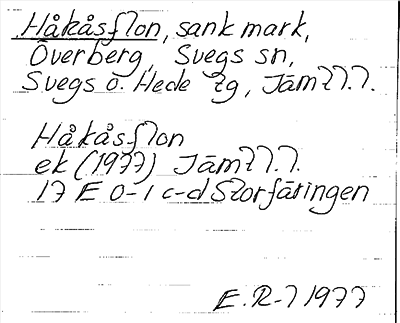 Håkåsflon, sank mark,
Överberg, Svegs sn,
Svegs o. Hede tg, Jämtl.l.
Håkåsflon
ek (1977) Jämtl.l.
17 E 0-1 c-d Storfåringen
E.R-l 1977